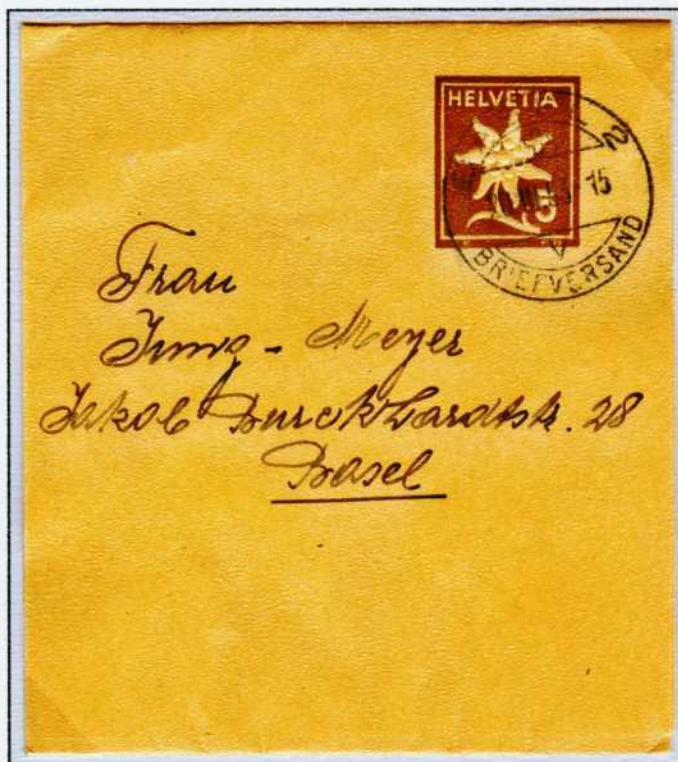 HELVETIA
5
2
15
BRIEFVERSAND
Frau
Jung - Meyer
Jakob Burckhardtstr. 28
Basel